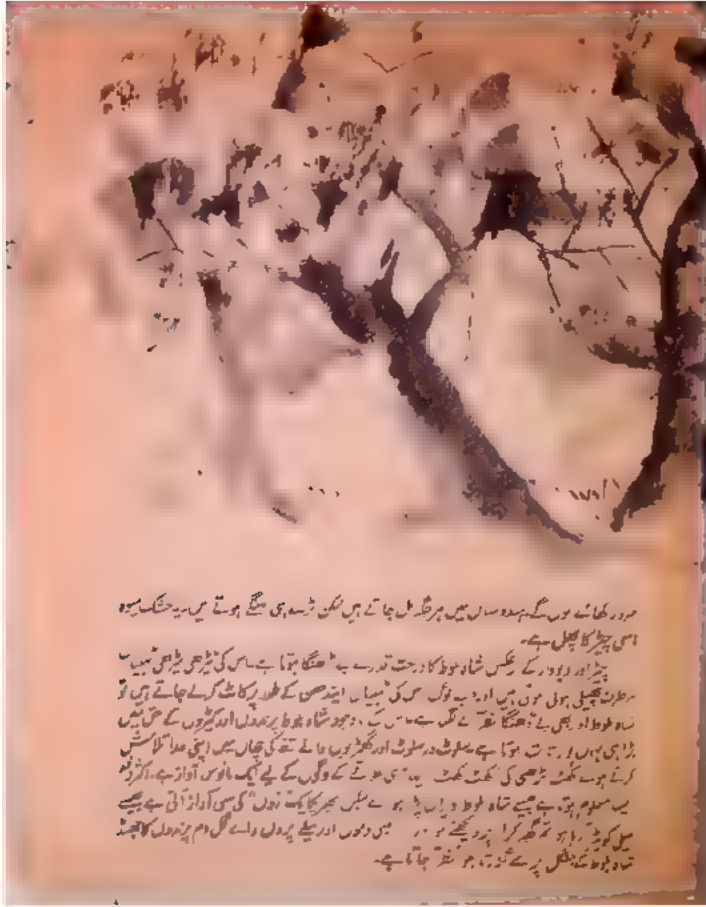 ضرور کھائے ہوں گے۔ ہندوستان میں ہر جگہ مل جاتے ہیں لیکن بڑے ہی مہنگے ہوتے ہیں۔ یہ خشک میوہ
اسی چیڑ کا پھل ہے۔
چیڑ اور دیودار کے برعکس شاہ بلوط کا درخت قدرے بے ڈھنگا ہوتا ہے۔ اس کی ٹیڑھی میڑھی ٹہنیاں
ہر طرف پھیلی ہوئی ہوتی ہیں اور جب لوگ اس کی ٹہنیاں ایندھن کے طور پر کاٹ کر لے جاتے ہیں تو
شاہ بلوط اور بھی بے ڈھنگا نظر آنے لگتا ہے۔ اس کے باوجود شاہ بلوط پرندوں اور کیڑوں کے حق میں
بڑا ہی مہربان ثابت ہوتا ہے۔ سلوٹ در سلوٹ اور کھڑدوں والے تنے کی چھال میں اپنی غذا تلاش
کرتے ہوئے کھٹ بڑھئی کی کھٹ کھٹ پہاڑی علاقے کے لوگوں کے لیے ایک مانوس آواز ہے۔ اکثر
یہ معلوم ہوتا ہے جیسے شاہ بلوط ویران پڑا ہو لیکن پھر یکایک "زوں" کی سی آواز آتی ہے جیسے
شاہ بلوط کے جنگل پر سے گزرتا ہوا نظر آ جاتا ہے۔